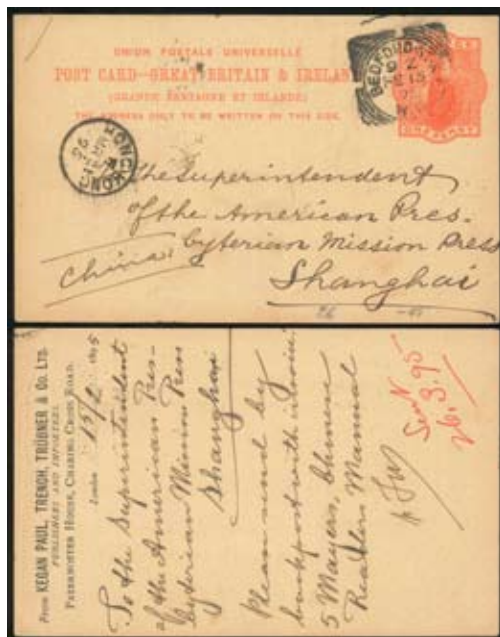 UNION POSTALE UNIVERSELLE
POST CARD-GREAT BRITAIN & IRELAND
(GRANDE BRETAGNE ET IRLANDE)
THE ADDRESS ONLY TO BE WRITTEN ON THIS SIDE.
ONE PENNY
HONG KONG
The Superintendent
of the American Pres-
byterian Mission Press
China
Shanghai
From KEGAN PAUL, TRENCH, TRÜBNER & CO. LTD.
PUBLISHERS AND IMPORTERS,
PATERNOSTER HOUSE, CHARING CROSS ROAD.
London 15/2 1895
To the Superintendent
of the American Pres-
byterian Mission Press
Shanghai
Please send by
bookpost with invoice
5 Mayers, Chinese
Readers Manual
Sent
26.3.95